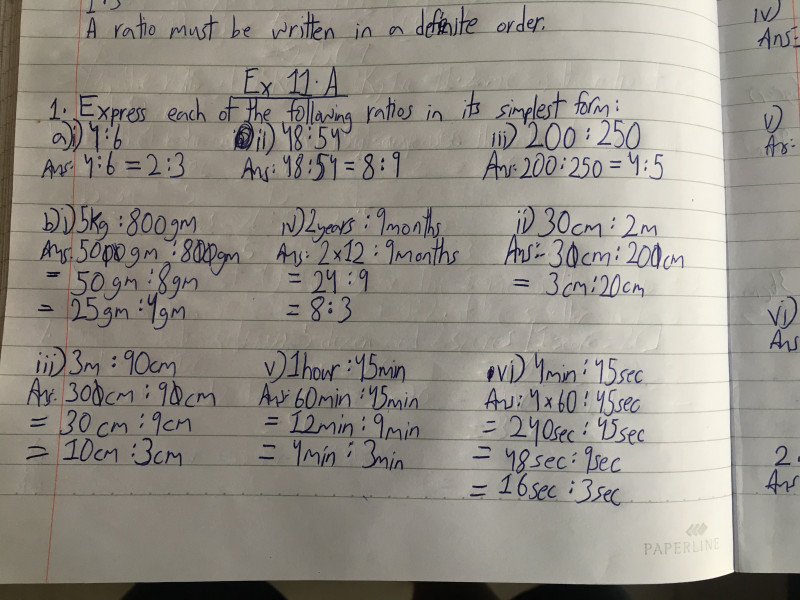 A ratio must be written in a definite order.
Ex 11.A
1. Express each of the following ratios in its simplest form:
a) i) 4:6 ii) 48:54 iii) 200:250
Ans: 4:6 = 2:3 Ans: 48:54 = 8:9 Ans: 200:250 = 4:5
b) i) 5kg : 800gm iv) 2years : 9months ii) 30cm : 2m
Ans: 5000gm : 800gm Ans: 2×12 : 9months Ans:- 30cm : 200cm
= 50gm : 8gm = 24 : 9 = 3cm : 20cm
= 25gm : 4gm = 8:3
iii) 3m : 90cm v) 1hour : 45min vi) 4min : 45sec
Ans: 300cm : 90cm Ans: 60min : 45min Ans: 4×60 : 45sec
= 30cm : 9cm = 12min : 9min = 240sec : 45sec
= 10cm : 3cm = 4min : 3min = 48sec : 9sec
= 16sec : 3sec
PAPERLINE
iv)
Ans:
v)
An:
vi)
Ans
2.
Ans